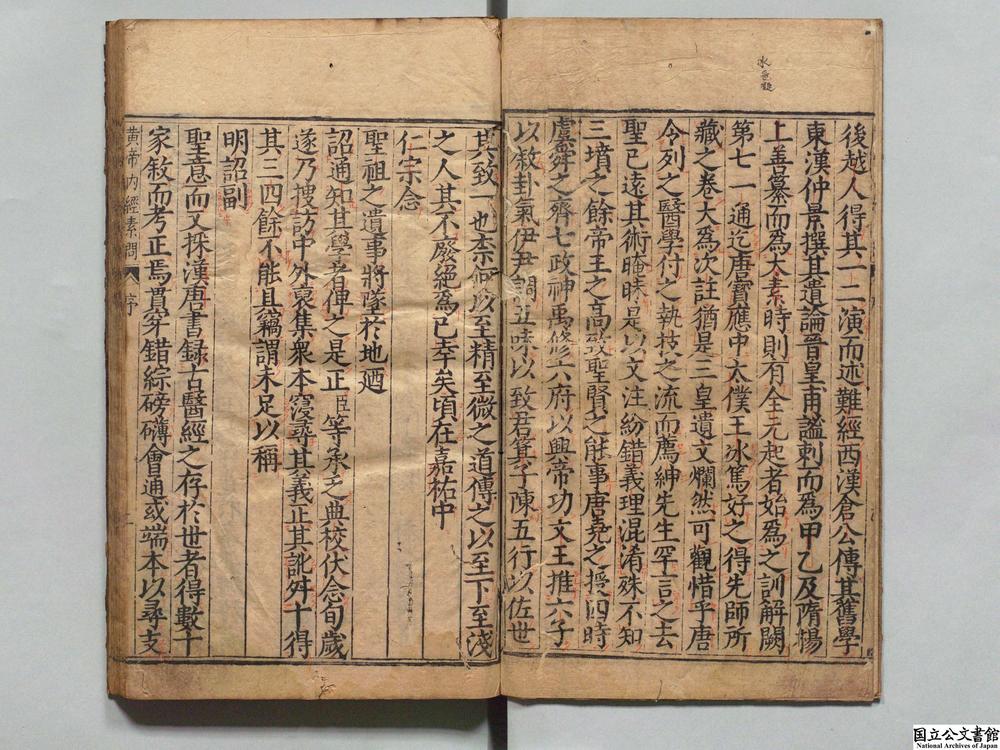 氷
後越人得其一二演而述難經西漢倉公傳其舊學
東漢仲景撰其遺論晉皇甫謐刺而爲甲乙及隋楊
上善纂而爲太素時則有全元起者始爲之訓解闕
第七一通迄唐寶應中太僕王冰篤好之得先師所
藏之卷大爲次註猶是三皇遺文爛然可觀惜乎唐
令列之醫學付之執技之流而薦紳先生罕言之去
聖已遠其術晻昧是以文注紛錯義理混淆殊不知
三墳之餘帝王之高致聖賢之能事唐堯之授四時
虞舜之齊七政神禹修六府以興帝功文王推六子
以敘卦氣伊尹調五味以致君箕子陳五行以佐世
其致一也柰何以至精至微之道傳之以至下至淺
之人其不廢絕爲已幸矣頃在嘉祐中
仁宗念
聖祖之遺事將墜於地廼
詔通知其學者俾之是正臣等承乏典校伏念旬歲
遂乃搜訪中外裒集衆本寖尋其義正其訛舛十得
其三四餘不能具竊謂未足以稱
明詔副
聖意而又採漢唐書録古醫經之存於世者得數十
家敘而考正焉貫穿錯綜磅礴會通或端本以尋支
黃帝内經素問 序
国立公文書館
National Archives of Japan